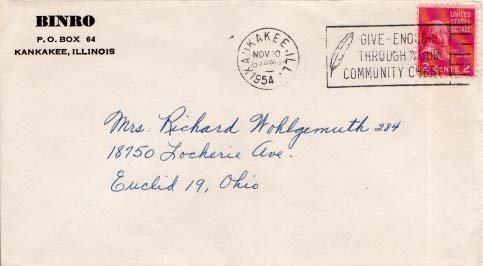 BINRO
P.O. BOX 64
KANKAKEE, ILLINOIS
KANKAKEE, ILL.
NOV
1954
GIVE-ENOUGH
THROUGH YOUR
COMMUNITY CHEST
UNITED
STATES
POSTAGE
2 CENTS 2
Mrs. Richard Wohlgemuth 284
18750 Lockerie Ave.
Euclid 19, Ohio